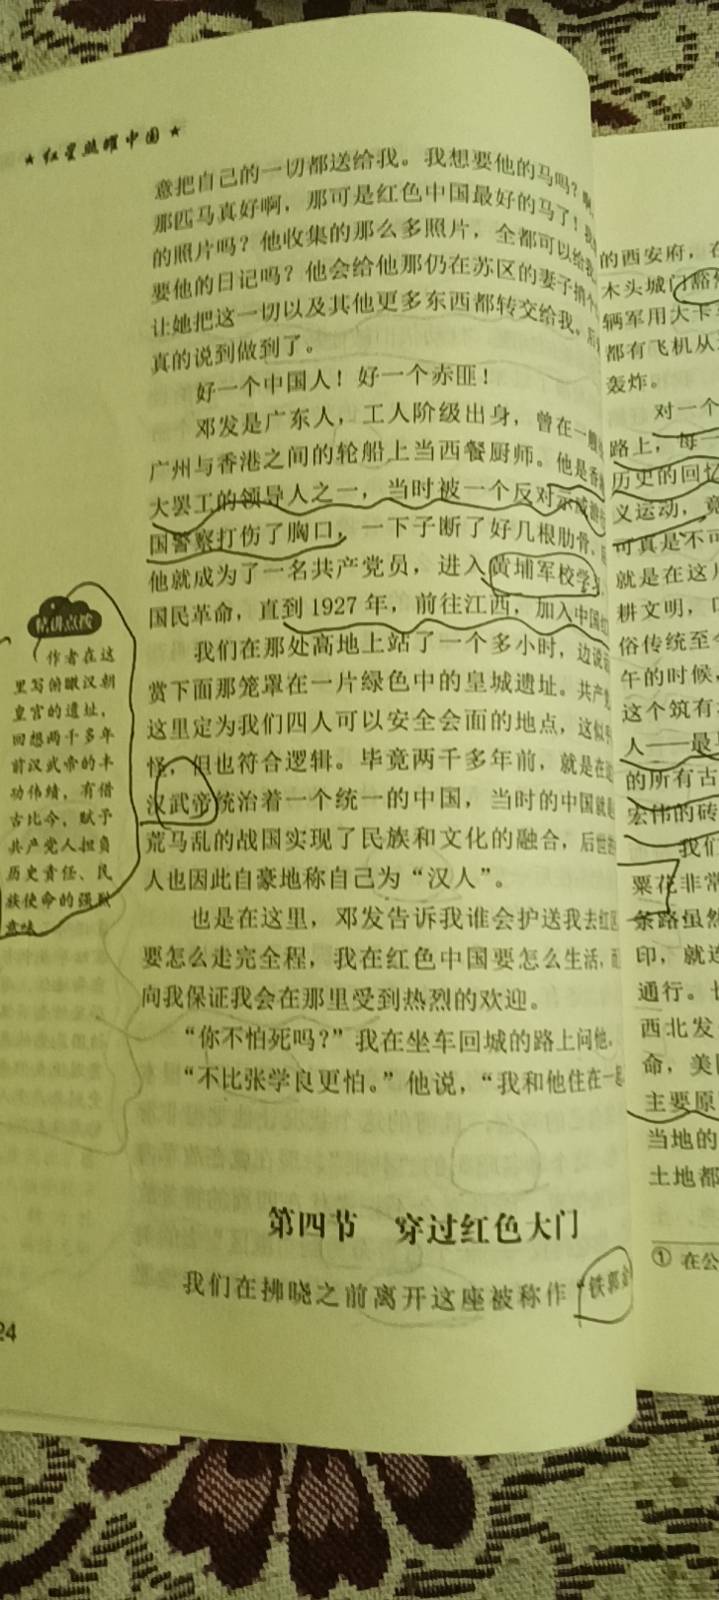 ★ 红星照耀中国 ★
意把自己的一切都送给我。我想要他的马吗？啊，
那匹马真好啊，那可是红色中国最好的马了！我
的照片吗？他收集的那么多照片，全都可以给我
要他的日记吗？他会给他那仍在苏区的妻子捎个
让她把这一切以及其他更多东西都转交给我。后
真的说到做到了。
好一个中国人！好一个赤匪！
邓发是广东人，工人阶级出身，曾在一艘
广州与香港之间的轮船上当西餐厨师。他是香港
大罢工的领导人之一，当时被一个反对示威
国警察打伤了胸口，一下子断了好几根肋骨，
他就成为了一名共产党员，进入黄埔军校学
国民革命，直到 1927 年，前往江西，加入中国红
我们在那处高地上站了一个多小时，边说
赏下面那笼罩在一片绿色中的皇城遗址。共产党
这里定为我们四人可以安全会面的地点，这似乎
怪，但也符合逻辑。毕竟两千多年前，就是在这
汉武帝统治着一个统一的中国，当时的中国就
荒马乱的战国实现了民族和文化的融合，后世
人也因此自豪地称自己为“汉人”。
也是在这里，邓发告诉我谁会护送我去红区
要怎么走完全程，我在红色中国要怎么生活，而
向我保证我会在那里受到热烈的欢迎。
“你不怕死吗？”我在坐车回城的路上问他。
“不比张学良更怕。”他说，“我和他住在一起
第四节 穿过红色大门
我们在拂晓之前离开这座被称作“铁郭金
24
精讲点拨
作者在这
里写俯瞰汉朝
皇宫的遗址，
回想两千多年
前汉武帝的丰
功伟绩，有借
古比今，赋予
共产党人担负
历史责任、民
族使命的强烈
意味
的西安府，在
木头城门豁然
辆军用大卡车
都有飞机从
轰炸。
对一个
路上，每一
历史的回忆
义运动，竟
可真是不可
就是在这片
耕文明，
俗传统至今
午的时候，
这个筑有
人——最
的所有古
宏伟的砖
我们
粟花非常
条路虽然
印，就连
通行。
西北发
命，美国
主要原
当地的
土地都
① 在公